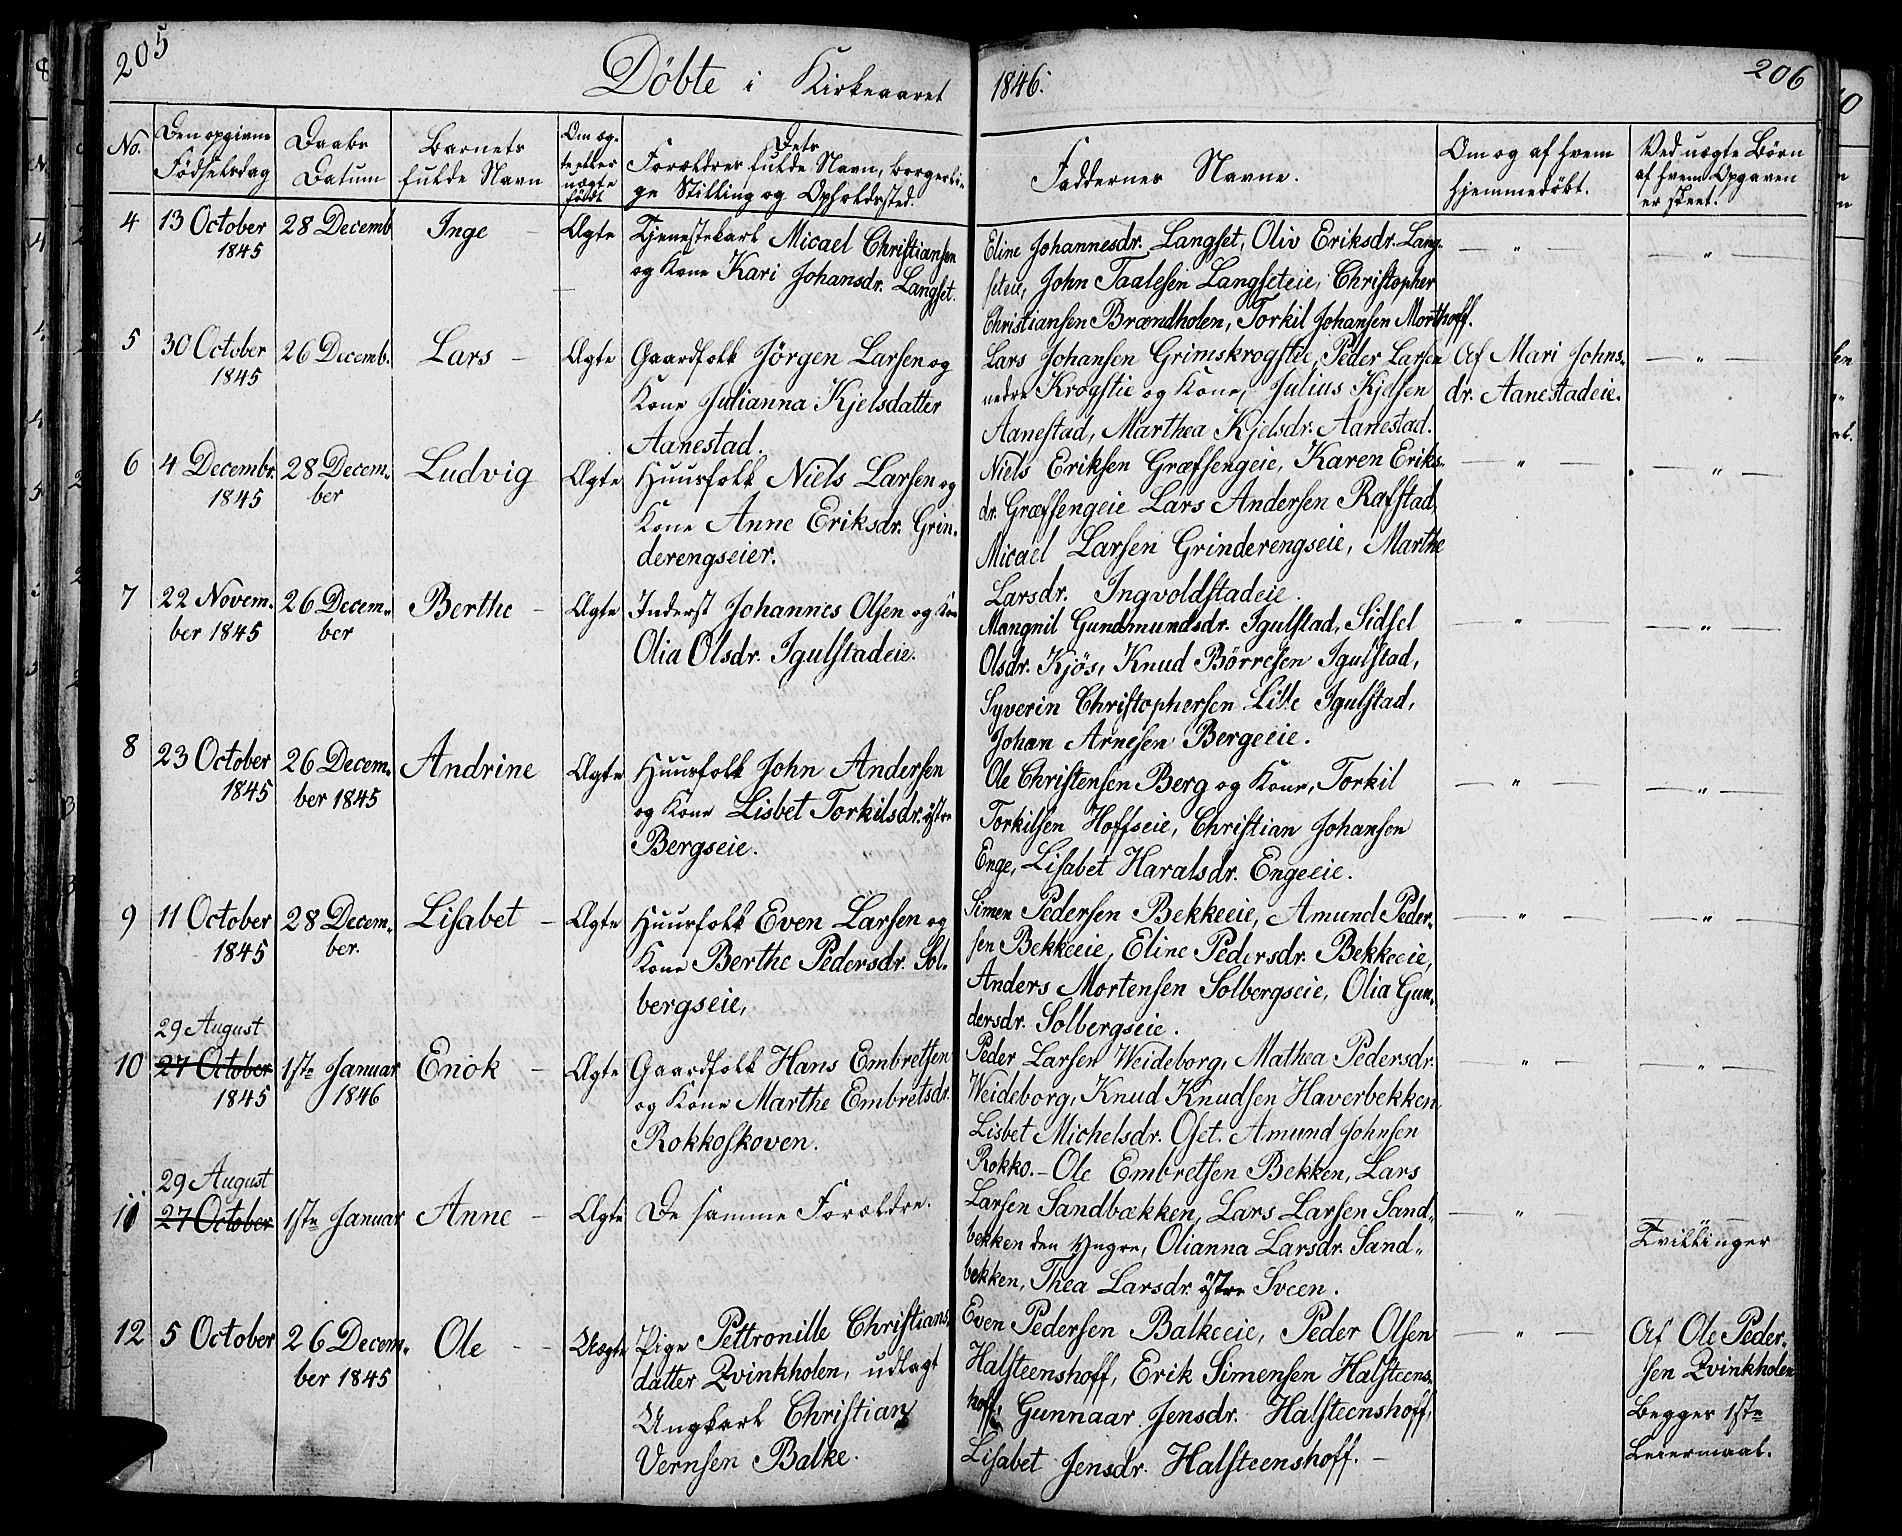 205
Döbte i Kirkeaaret
1846.
206
No.
Den opgivne
Födselsdag
Daabs
Datum
Barnets
fulde Navn
Om æg-
te eller
uægte
födt
Dets
Forældres fulde Navn, borgerli-
ge Stilling og Opholdssted.
Faddernes Navne.
Om og af hvem
hjemmedöbt.
Ved uægte Börn
af hvem Opgaven
er skeet.
4 13 October 28 Decemb Inge - Ægte Tjenestekarl Micael Christiansen
1845 og Kone Kari Johansdr. Langset.
Eline Johannesdr. Langset, Oliv Eriksdr. Lang-
seteie, John Taalesen Langseteie, Christopher
Christiansen Brændholen, Torkil Johansen Morthoff.
— " — — " —
5 30 October 26 Decemb. Lars - Ægte Gaardfolk Jörgen Larsen og
1845 Kone Julianna Kjelsdatter
Aanestad.
Lars Johansen Grimskrogstie, Peder Larsen
nedre Krogstie og Kone, Julius Kjelsen
Aanestad, Marthea Kjelsdr. Aanestad.
Af Mari Johns-
dr. Aanestadeie.
— " —
6 4 Decembr. 28 Decem- Ludvig Ægte Huusfolk Niels Larsen og
1845 ber Kone Anne Eriksdr. Grin-
derengseier.
Niels Eriksen Græfsengeie, Karen Eriks-
dr. Græfsengeie Lars Andersen Rafstad,
Micael Larsen Grinderengseie, Marthe
Larsdr. Ingvoldstadeie.
— " — — " —
7 22 Novem- 26 Decem- Berthe - Ægte Inderst Johannes Olsen og Kone
ber 1845 ber Olia Olsdr. Igulstadeie.
Mangnil Gundmundsdr. Igulstad, Sidsel
Olsdr. Kjös, Knud Börresen Igulstad,
Syverin Christophersen Lille Igulstad,
Johan Arnesen Bergeeie.
— " — — " —
8 23 October 26 Decem- Andrine Ægte Huusfolk John Andersen
1845 ber 1845 og Kone Lisbet Torkilsdr. östre
Bergseie.
Ole Christensen Berg og Kone, Torkil
Torkilsen Hoffseie, Christian Johansen
Enge, Lisabet Haralsdr. Engeeie.
— " — — " —
9 11 October 28 Decem- Lisabet - Ægte Huusfolk Even Larsen og
1845 ber. Kone Berthe Pedersdr. Sol-
bergseie,
Simen Pedersen Bekkeeie, Amund Peder-
sen Bekkeeie, Eline Pedersdr. Bekkeeie,
Anders Mortensen Solbergseie, Olia Gun-
dersdr. Solbergseie.
— " — — " —
29 August
10 27 October 1ste Januar Enok - Ægte Gaardfolk Hans Embretsen
1845 1846 og Kone Marthe Embretsdr.
Rokkoskoven.
Peder Larsen Weideborg, Mathea Pedersdr.
Weideborg, Knud Knudsen Haverbekken,
Lisbet Michelsdr. Oset. Amund Johnsen
Rokko. - Ole Embretsen Bekken, Lars
— " — — " —
29 August
11 27 October 1ste Januar Anne - Ægte De samme Forældre.
Larsen Sandbækken, Lars Larsen Sand-
bekken den Yngre, Olianna Larsdr. Sand-
bekken, Thea Larsdr. östre Sveen.
— " —
Tvillinger
12 5 October 26 Decem- Ole - Uægte Pige Pettronille Christians
ber 1845 datter Qvinkholen, udlagt
Ungkarl Christian
Vernsen Balke.
Even Pedersen Balkeeie, Peder Olsen
Halsteenshoff, Erik Simensen Halsteens-
hoff, Gunnaar Jensdr. Halsteenshoff,
Lisabet Jensdr. Halsteenshoff. -
— " —
Af Ole Peder-
sen Qvinkholen
Begges 1ste
Leiermaal.